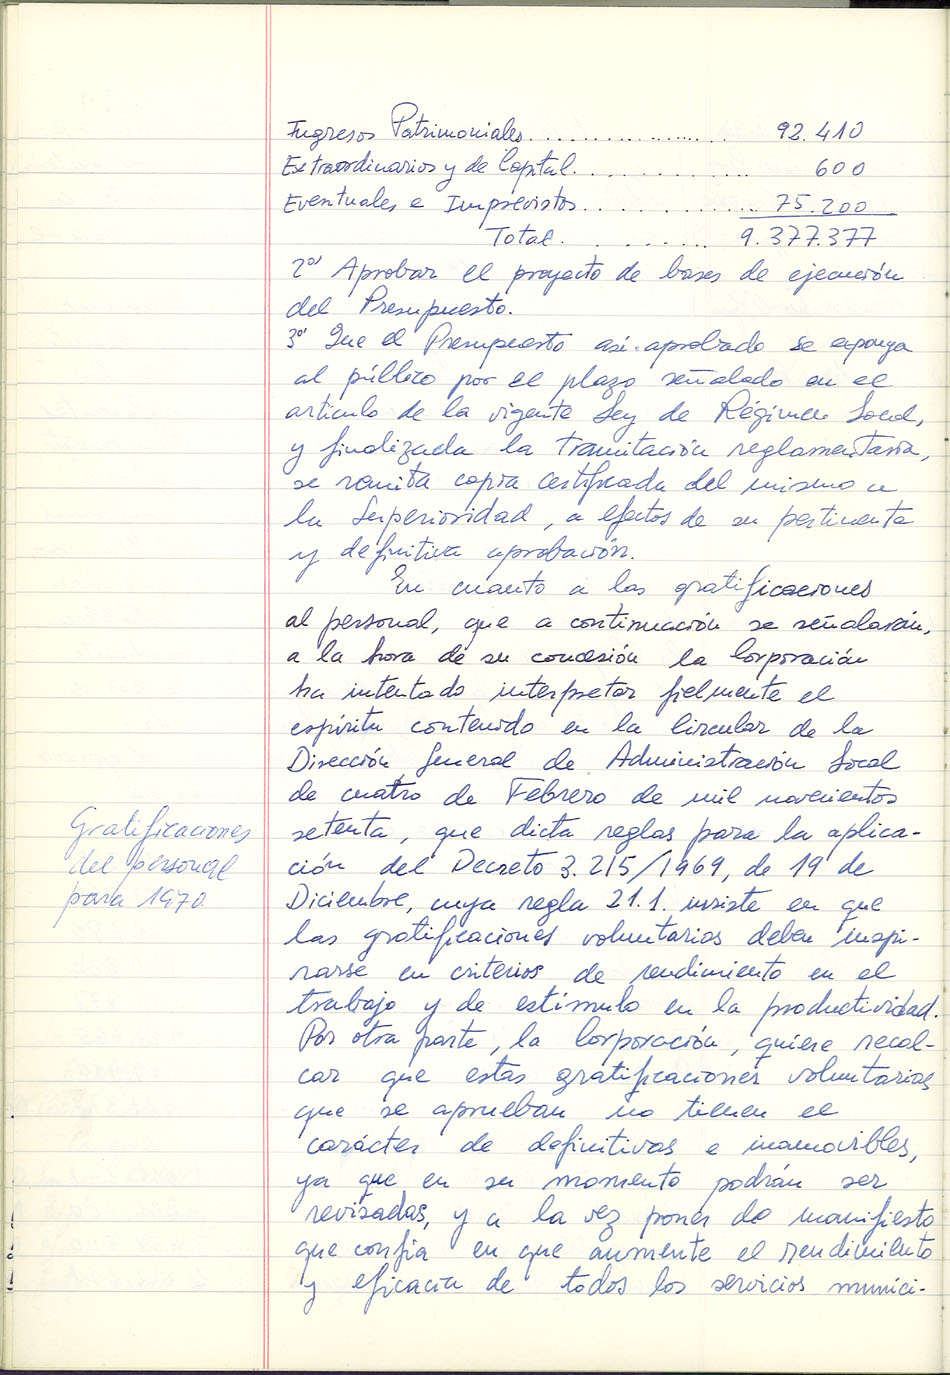 Ingresos Patrimoniales..................... 92.410
Extraordinarios y de Capital............ 600
Eventuales e Imprevistos............ 75.200
Total......... 9.377.377
2º Aprobar el proyecto de bases de ejecución
del Presupuesto.
3º Que el Presupuesto así aprobado se exponga
al público por el plazo señalado en el
artículo de la vigente Ley de Régimen Local,
y finalizada la tramitación reglamentaria,
se remita copia certificada del mismo a
la Superioridad, a efectos de su pertinente
y definitiva aprobación.
En cuanto a las gratificaciones
al personal, que a continuación se señalarán,
a la hora de su concesión la Corporación
ha intentado interpretar fielmente el
espíritu contenido en la Circular de la
Dirección General de Administración Local
de cuatro de Febrero de mil novecientos
setenta, que dicta reglas para la aplica-
ción del Decreto 3.215/1969, de 19 de
Diciembre, cuya regla 21.1. insiste en que
las gratificaciones voluntarias deben inspi-
rarse en criterios de rendimiento en el
trabajo y de estímulo en la productividad.
Por otra parte, la Corporación, quiere recal-
car que estas gratificaciones voluntarias
que se aprueban no tienen el
carácter de definitivas e inamovibles,
ya que en su momento podrán ser
revisadas, y a la vez poner de manifiesto
que confía en que aumente el rendimiento
y eficacia de todos los servicios munici-
Gratificaciones
del personal
para 1970